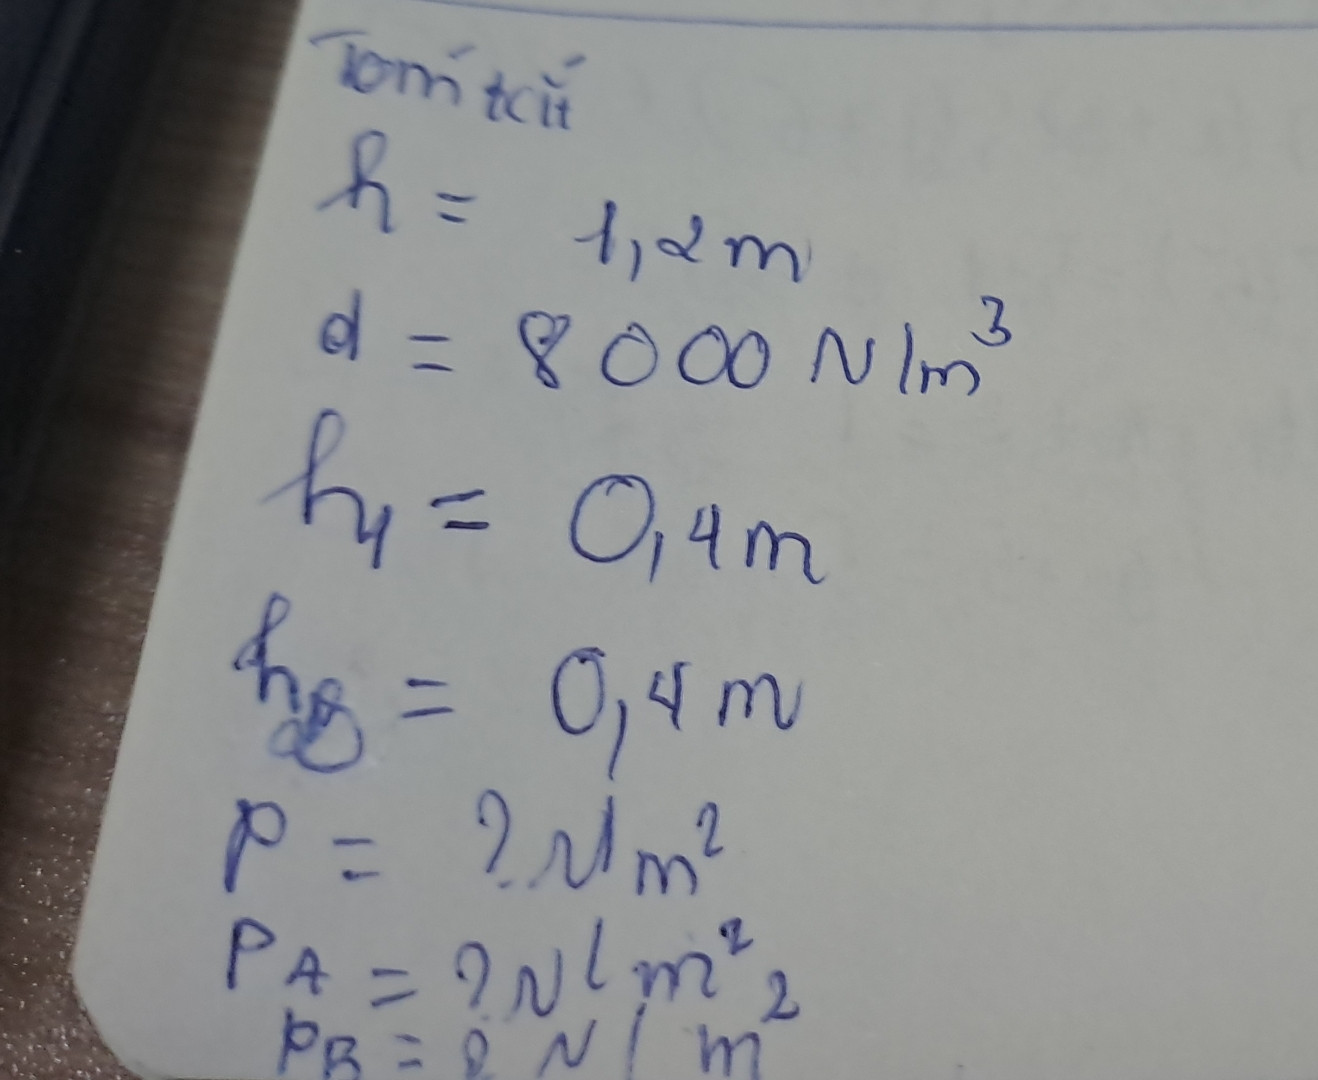 Tóm tắt
h = 1,2m
d = 8000 N/m³
h₁ = 0,4m
h_B = 0,4m
P = ? N/m²
P_A = ? N/m²
P_B = ? N/m²